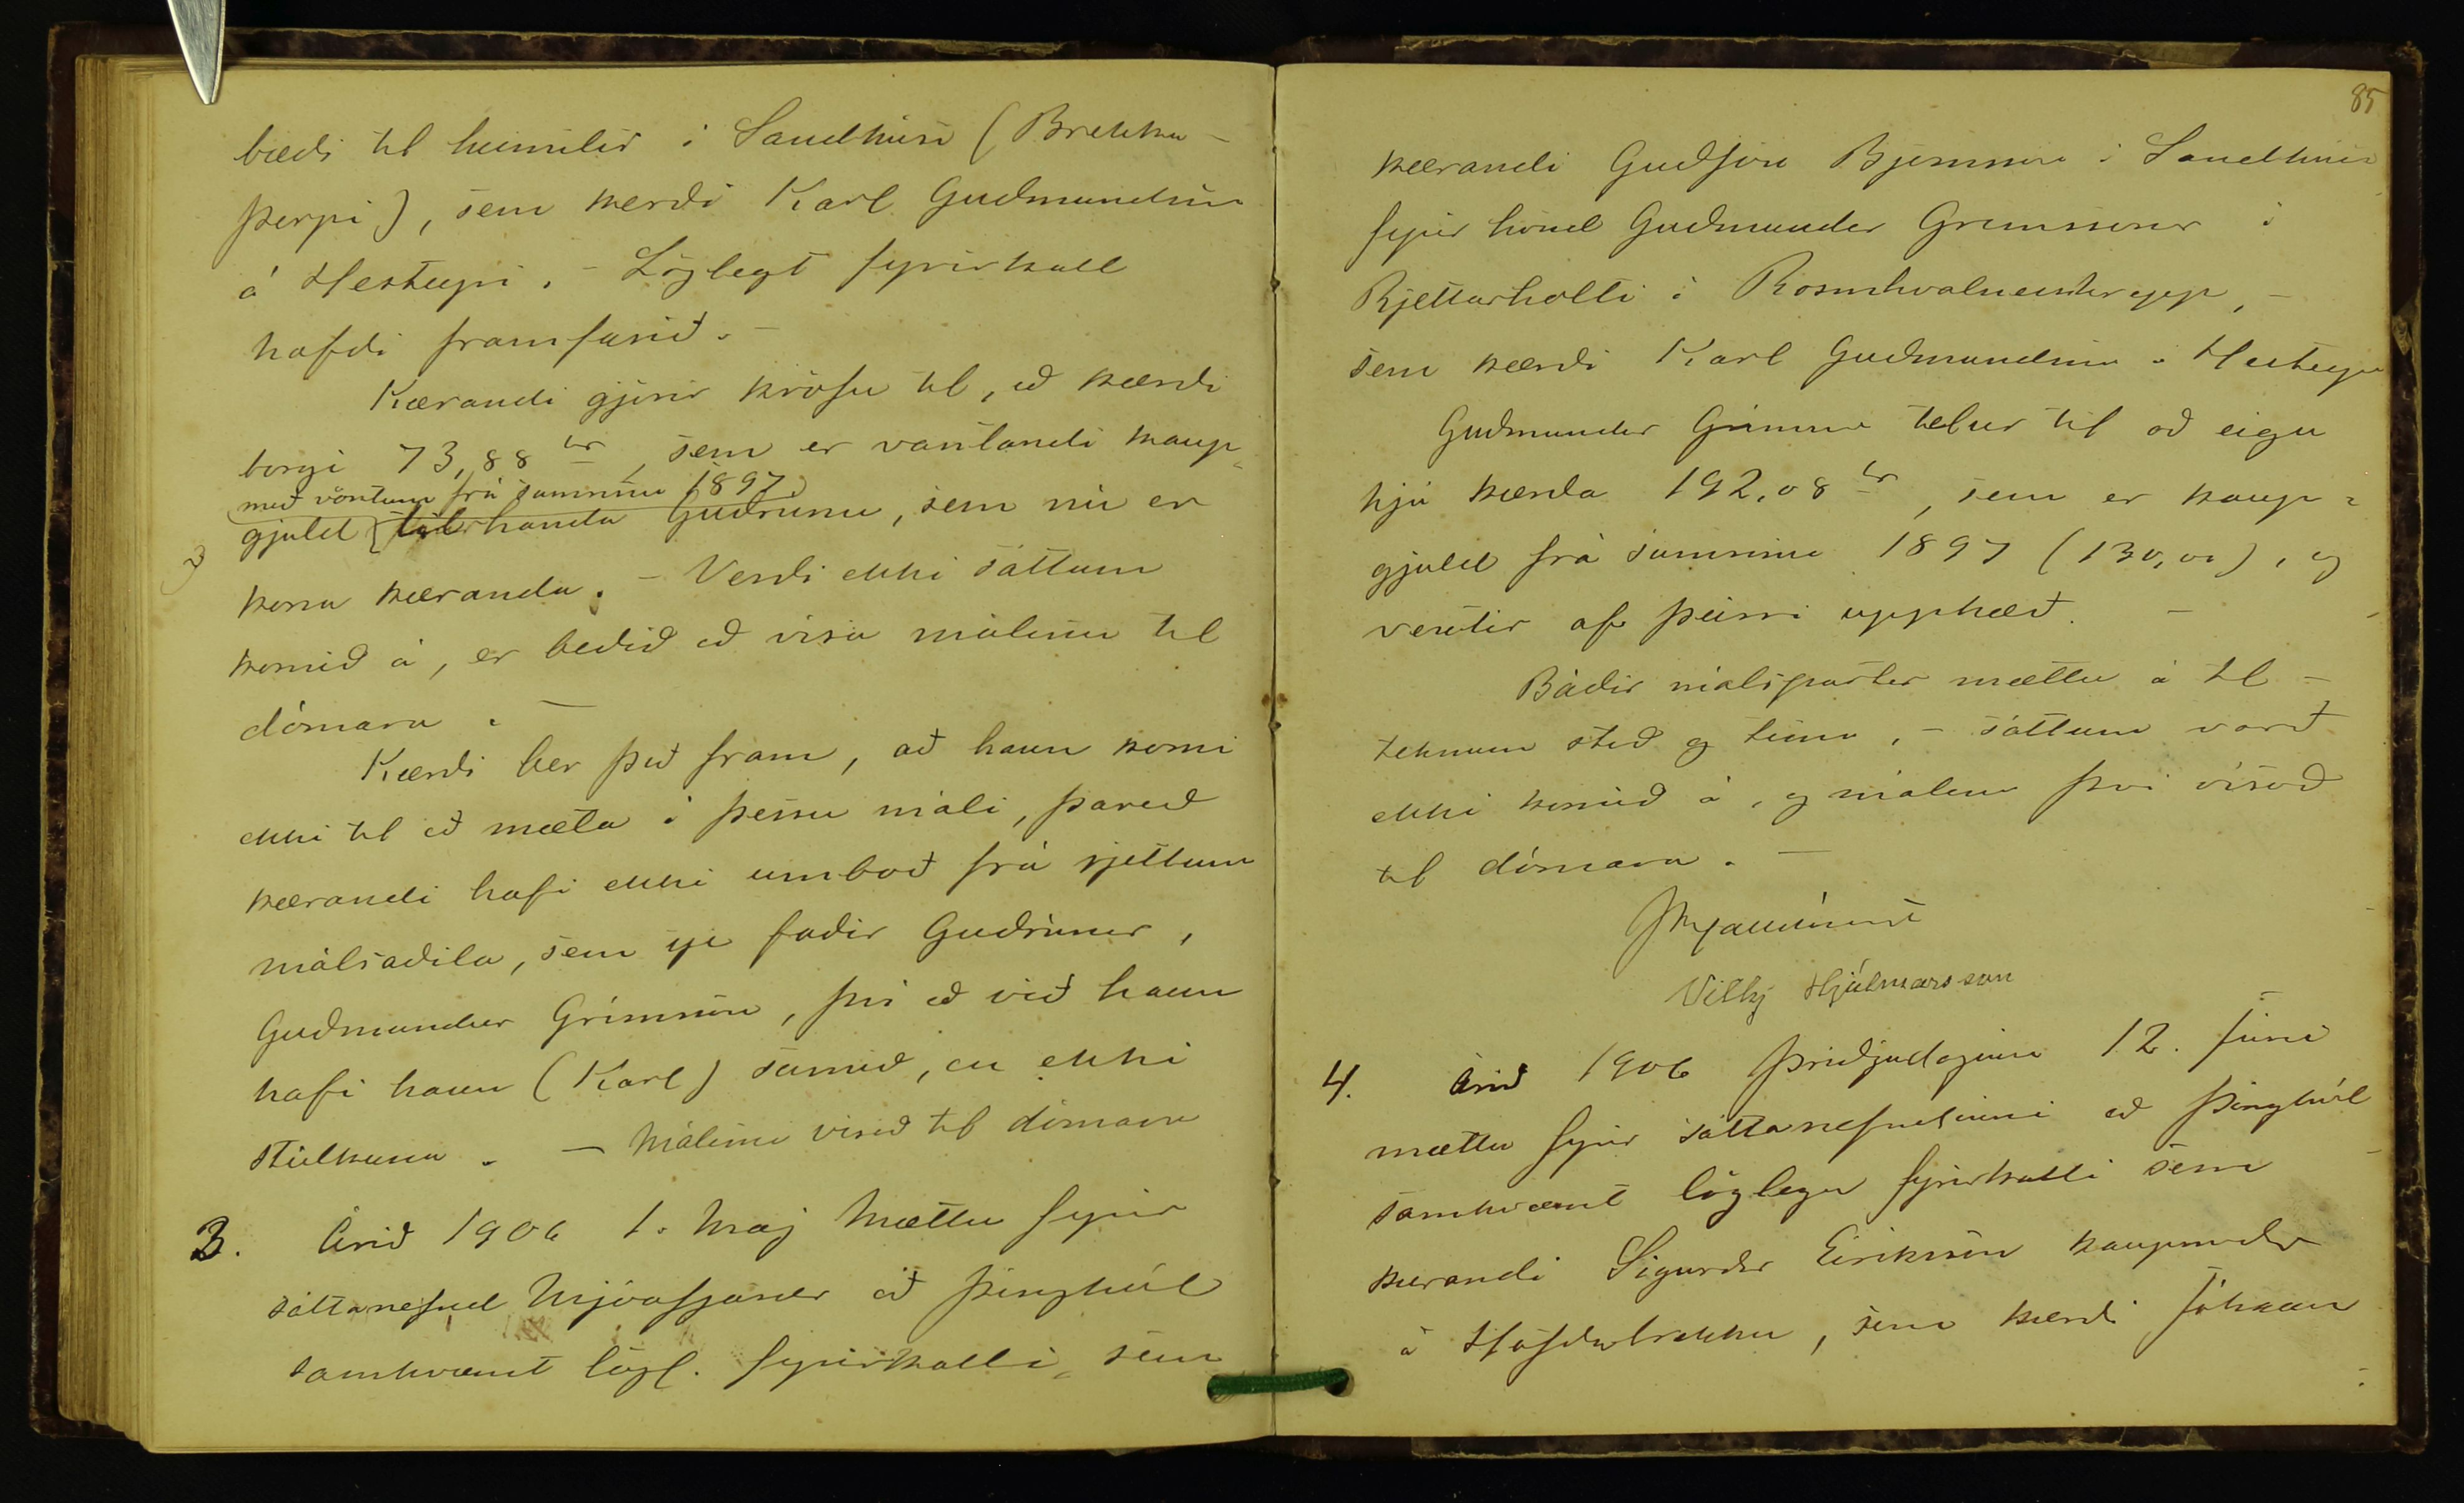 bæði til heimilis í Sandhúsi (Brekku-
þorpi), sem kærði Karl Guðmundsson
á Hesteyri. - Löglegt fyrirkall
hafði framfarið. -
Kærandi gjörir kröfu til, að kærði
borgi 73,88 kr, sem er vantandi kaup-
með vöxtum frá sumrinu 1897
gjald til handa Guðrúnu, sem nú er
kona kæranda. - Verði ekki sáttum
komið á, er beðið að vísa málinu til
dómara. -
Kærði ber það fram, að hann komi
ekki til að mæta í þessu máli, þareð
kærandi hafi ekki umboð frá rjettum
málsaðila, sem sje faðir Guðrúnar,
Guðmundur Grímsson, því að við hann
hafi hann (Karl) samið, en ekki
stúlkuna. - Málinu vísað til dómara
3. Árið 1906 1. Maj mættu fyrir
sáttanefnd Mjóafjarðar að Þinghól
samkvæmt lögl. fyrirkalli, sem
85
kærandi Guðjón Bjarnason í Sandhúsi
fyrir hönd Guðmundar Grímssonar í
Rjettarholti í Rosmhvalneshrepp, -
sem kærði Karl Guðmundsson á Hesteyri
Guðmundur Grímsson telur til að eiga
hjá kærða 192,08 kr, sem er kaup-
gjald frá sumrinu 1897 (130,00), og
vextir af þeirri upphæð. -
Báðir málspartar mættu á til-
teknum stað og tíma, - sáttum varð
ekki komið á, og málinu því vísað
til dómara. -
Vilhj Hjálmarsson
4. Árið 1906 þriðjudaginn 12. Júni
mættu fyrir sáttanefndinni að Þinghól
samkvæmt löglegu fyrirkalli sem
kærandi Sigurður Eiríksson kaupmaður
á Höfðabrekku, sem kærði Jóhann